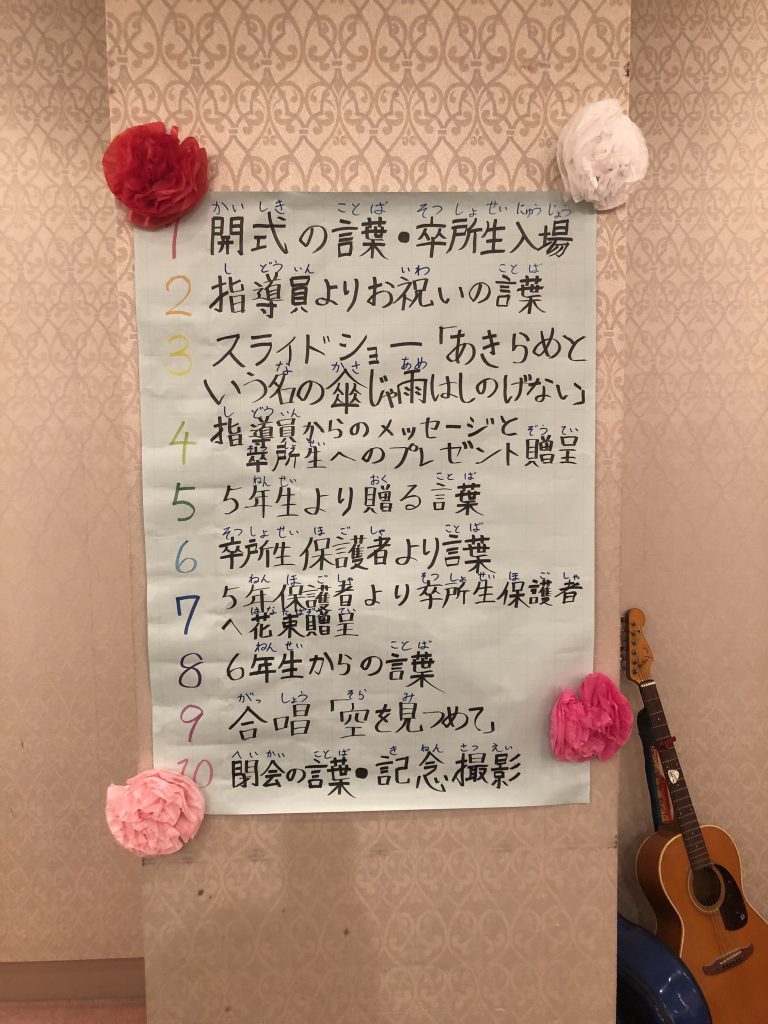 1 開式の言葉・卒所生入場
2 指導員よりお祝いの言葉
3 スライドショー「あきらめと
いう名の傘じゃ雨はしのげない」
4 指導員からのメッセージと
卒所生へのプレゼント贈呈
5 5年生より贈る言葉
6 卒所生保護者より言葉
7 5年保護者より卒所生保護者
へ花束贈呈
8 6年生からの言葉
9 合唱「空を見つめて」
10 閉会の言葉・記念撮影